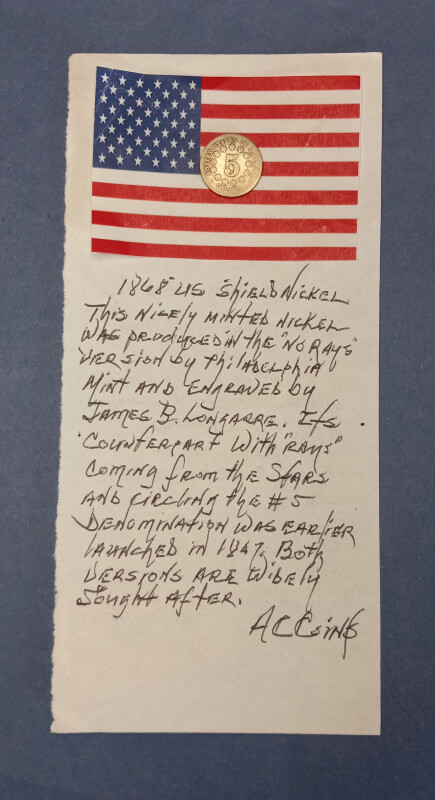 5
1868 US Shield Nickel
This Nicely minted nickel
was produced in the "No Rays"
version by Philadelphia
Mint and engraved by
James B. Longarre. Its
Counterpart with "rays"
coming from the stars
and circling the #5
Denomination was earlier
launched in 1867. Both
versions are widely
sought after.
ACCoins